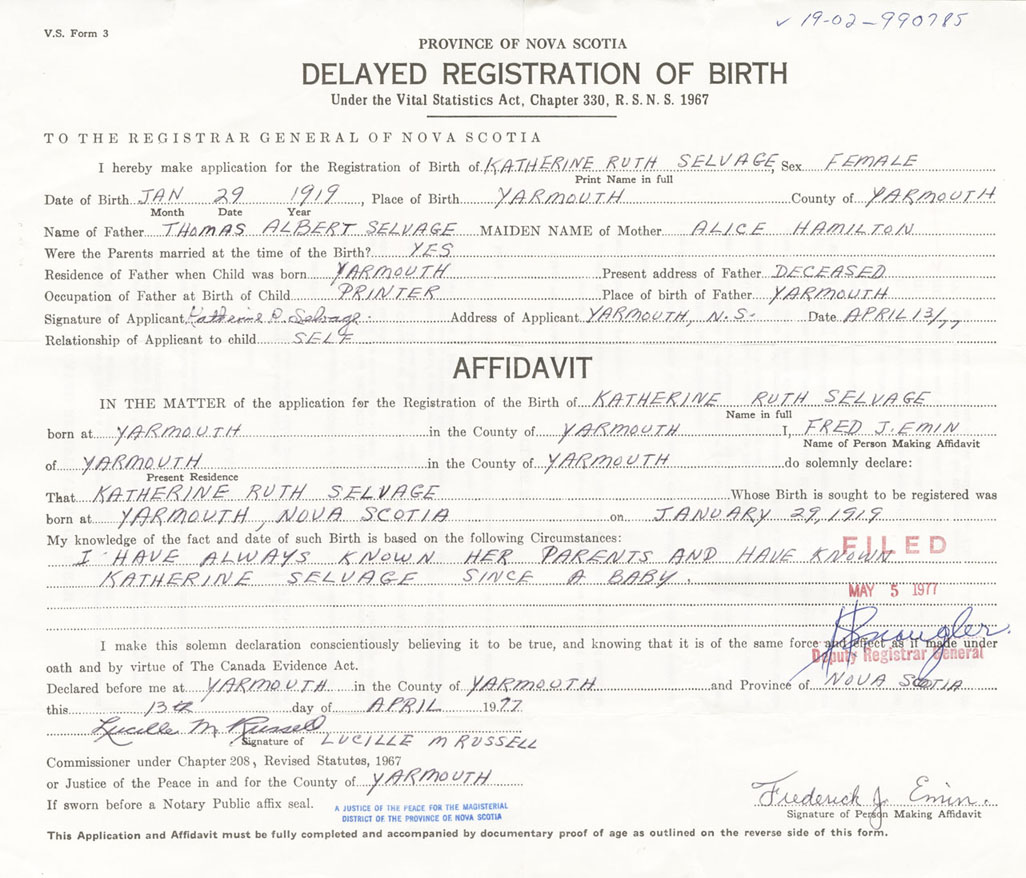 ✓ 19-02-990785
V.S. Form 3
PROVINCE OF NOVA SCOTIA
DELAYED REGISTRATION OF BIRTH
Under the Vital Statistics Act, Chapter 330, R. S. N. S. 1967
TO THE REGISTRAR GENERAL OF NOVA SCOTIA
I hereby make application for the Registration of Birth of KATHERINE RUTH SELVAGE, Sex FEMALE
Print Name in full
Date of Birth JAN 29 1919, Place of Birth YARMOUTH County of YARMOUTH
Month Date Year
Name of Father THOMAS ALBERT SELVAGE MAIDEN NAME of Mother ALICE HAMILTON
Were the Parents married at the time of the Birth? YES
Residence of Father when Child was born YARMOUTH Present address of Father DECEASED
Occupation of Father at Birth of Child PRINTER Place of birth of Father YARMOUTH
Signature of Applicant Katherine R. Selvage Address of Applicant YARMOUTH, N.S. Date APRIL 13/77
Relationship of Applicant to child SELF
AFFIDAVIT
IN THE MATTER of the application for the Registration of the Birth of KATHERINE RUTH SELVAGE
Name in full
born at YARMOUTH in the County of YARMOUTH I, FRED J. EMIN
Name of Person Making Affidavit
of YARMOUTH in the County of YARMOUTH do solemnly declare:
Present Residence
That KATHERINE RUTH SELVAGE Whose Birth is sought to be registered was
born at YARMOUTH, NOVA SCOTIA on JANUARY 29, 1919
My knowledge of the fact and date of such Birth is based on the following Circumstances:
I HAVE ALWAYS KNOWN HER PARENTS AND HAVE KNOWN
KATHERINE SELVAGE SINCE A BABY.
FILED
MAY 5 1977
Deputy Registrar General
I make this solemn declaration conscientiously believing it to be true, and knowing that it is of the same force and effect as if made under
oath and by virtue of The Canada Evidence Act.
Declared before me at YARMOUTH in the County of YARMOUTH and Province of NOVA SCOTIA
this 13th day of APRIL 1977
Lucille M. Russell
Signature of LUCILLE M RUSSELL
Commissioner under Chapter 208, Revised Statutes, 1967
or Justice of the Peace in and for the County of YARMOUTH
If sworn before a Notary Public affix seal.
A JUSTICE OF THE PEACE FOR THE MAGISTERIAL
DISTRICT OF THE PROVINCE OF NOVA SCOTIA
Frederick J. Emin.
Signature of Person Making Affidavit
This Application and Affidavit must be fully completed and accompanied by documentary proof of age as outlined on the reverse side of this form.